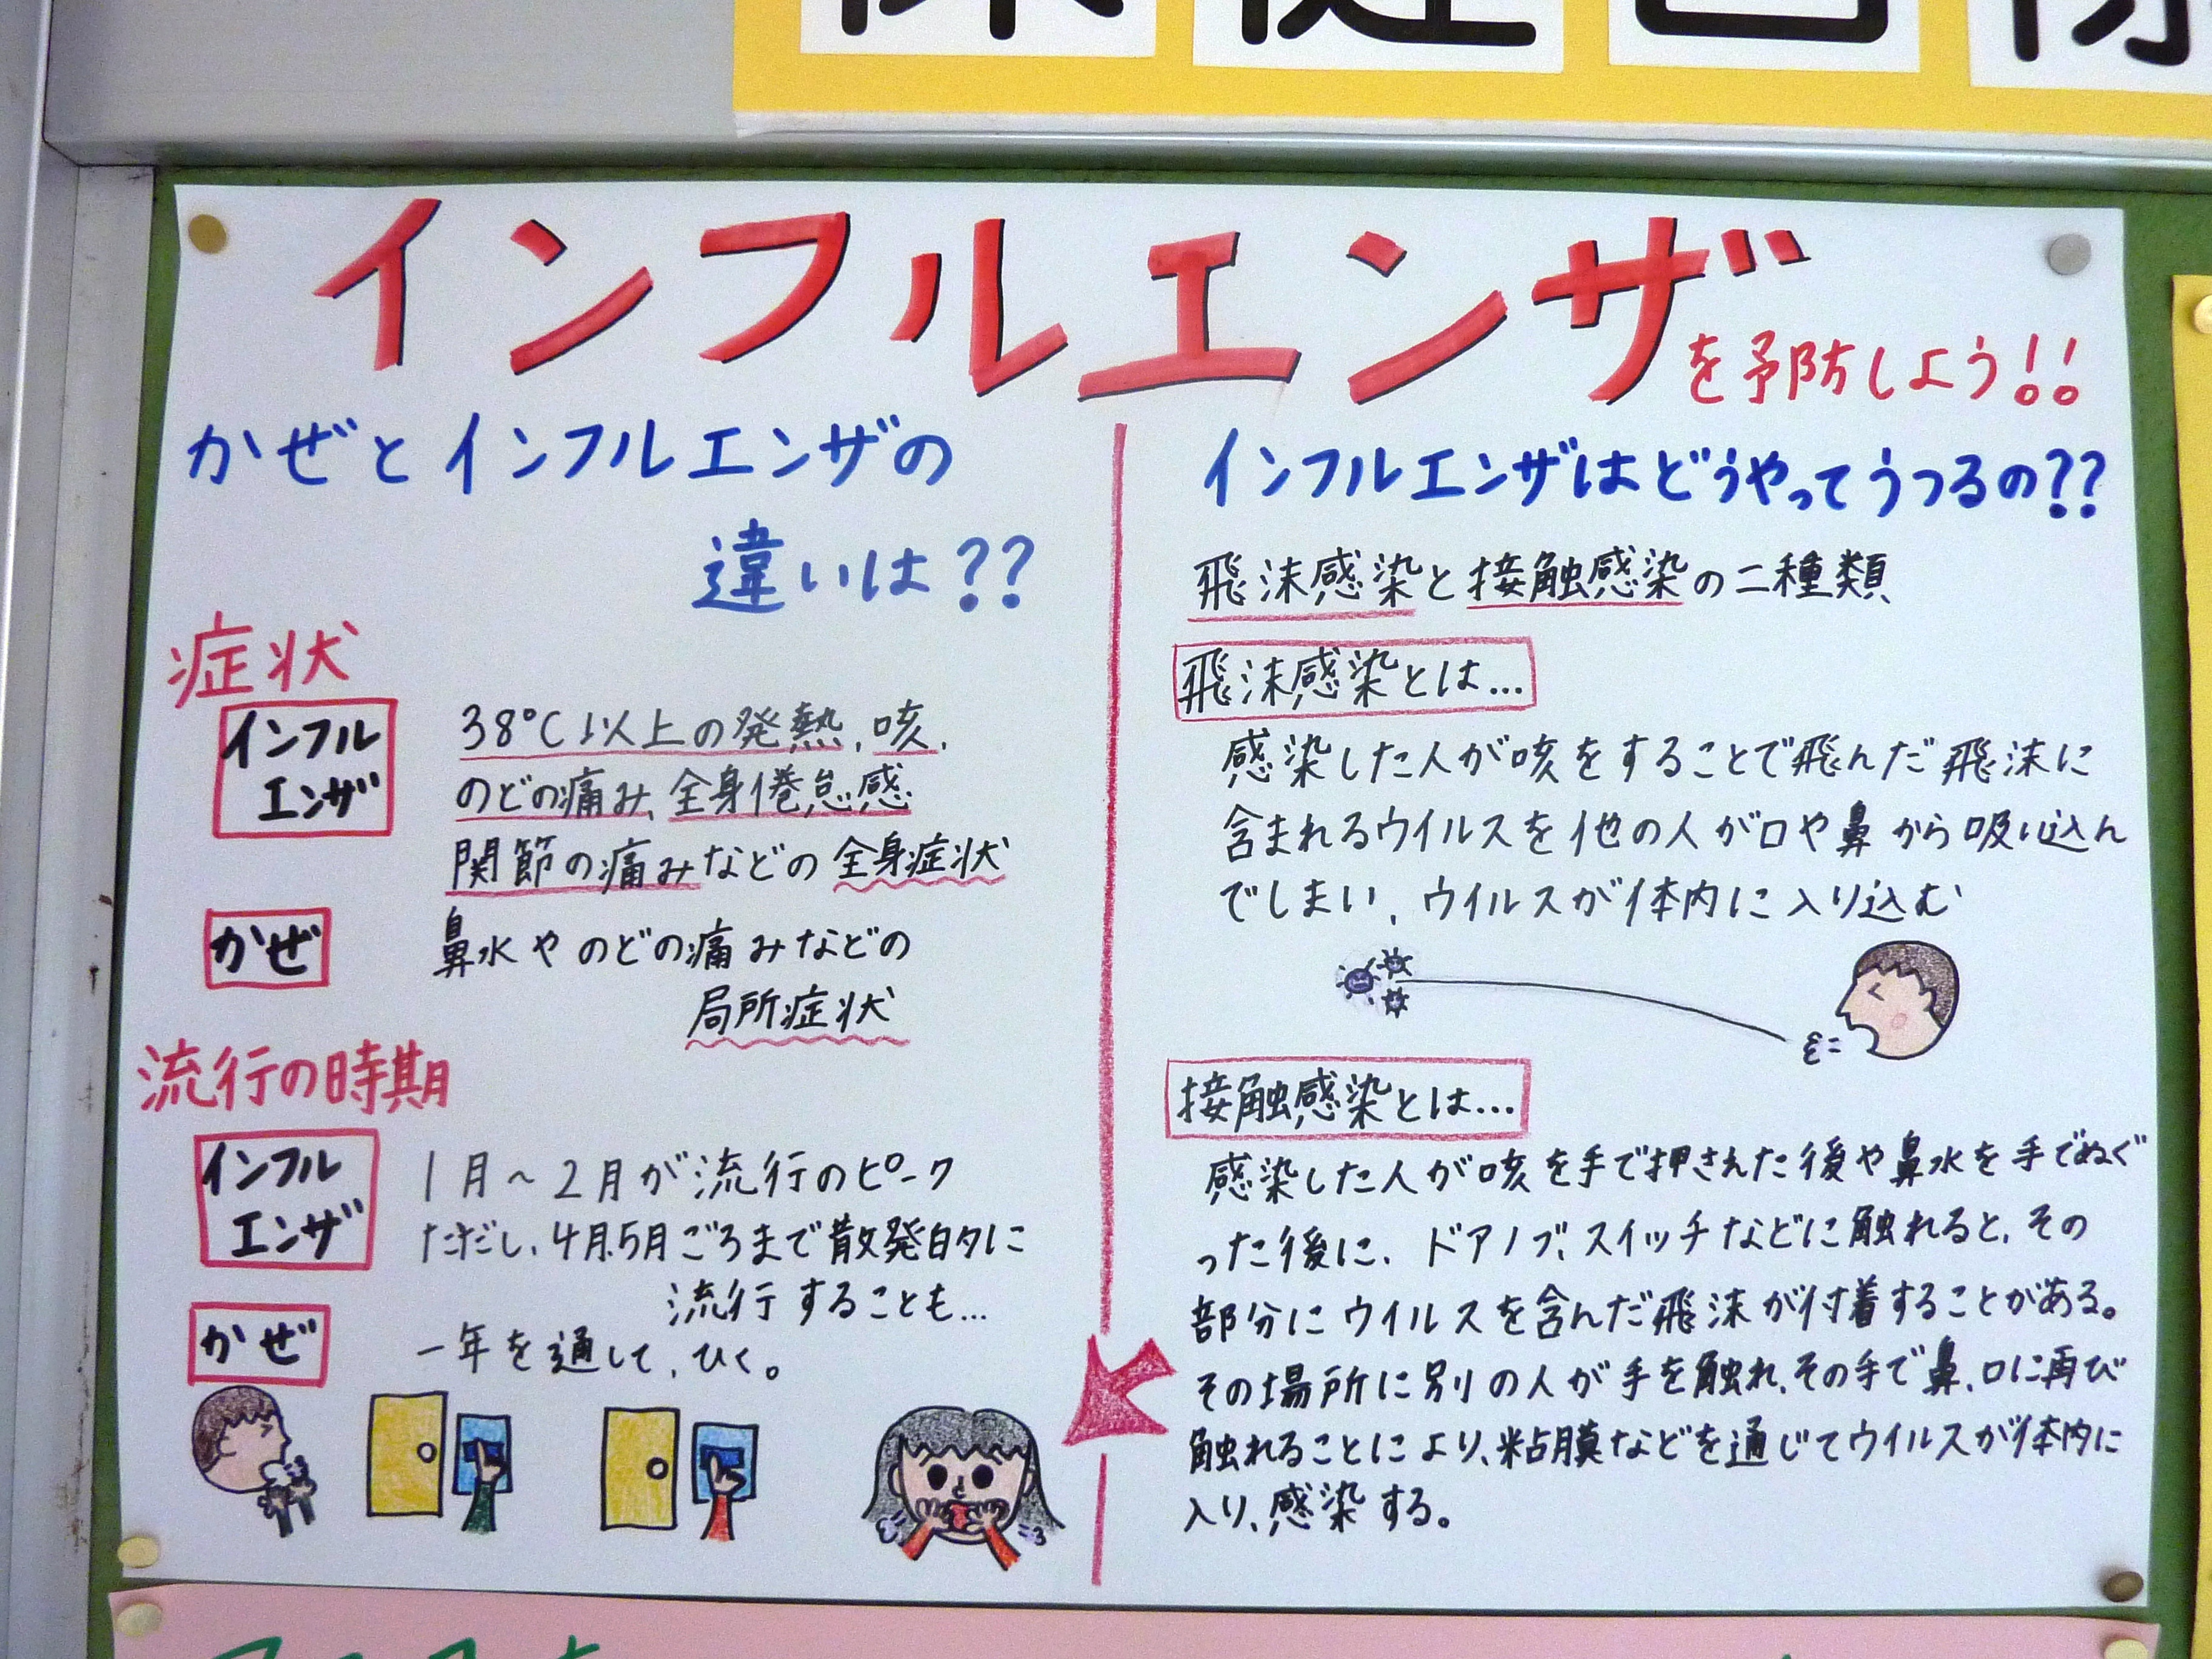 インフルエンザを予防しよう!!
かぜとインフルエンザの
違いは??
症状
インフル
エンザ
38℃以上の発熱、咳、
のどの痛み、全身倦怠感
関節の痛みなどの全身症状
かぜ
鼻水やのどの痛みなどの
局所症状
流行の時期
インフル
エンザ
1月~2月が流行のピーク
ただし、4月、5月ごろまで散発的に
流行することも…
かぜ
一年を通して、ひく。
インフルエンザはどうやってうつるの??
飛沫感染と接触感染の二種類
飛沫感染とは…
感染した人が咳をすることで飛んだ飛沫に
含まれるウイルスを他の人が口や鼻から吸い込ん
でしまい、ウイルスが体内に入り込む
接触感染とは…
感染した人が咳を手で押さえた後や鼻水を手でぬぐ
った後に、ドアノブ、スイッチなどに触れると、その
部分にウイルスを含んだ飛沫が付着することがある。
その場所に別の人が手を触れ、その手で鼻、口に再び
触れることにより、粘膜などを通じてウイルスが体内に
入り、感染する。